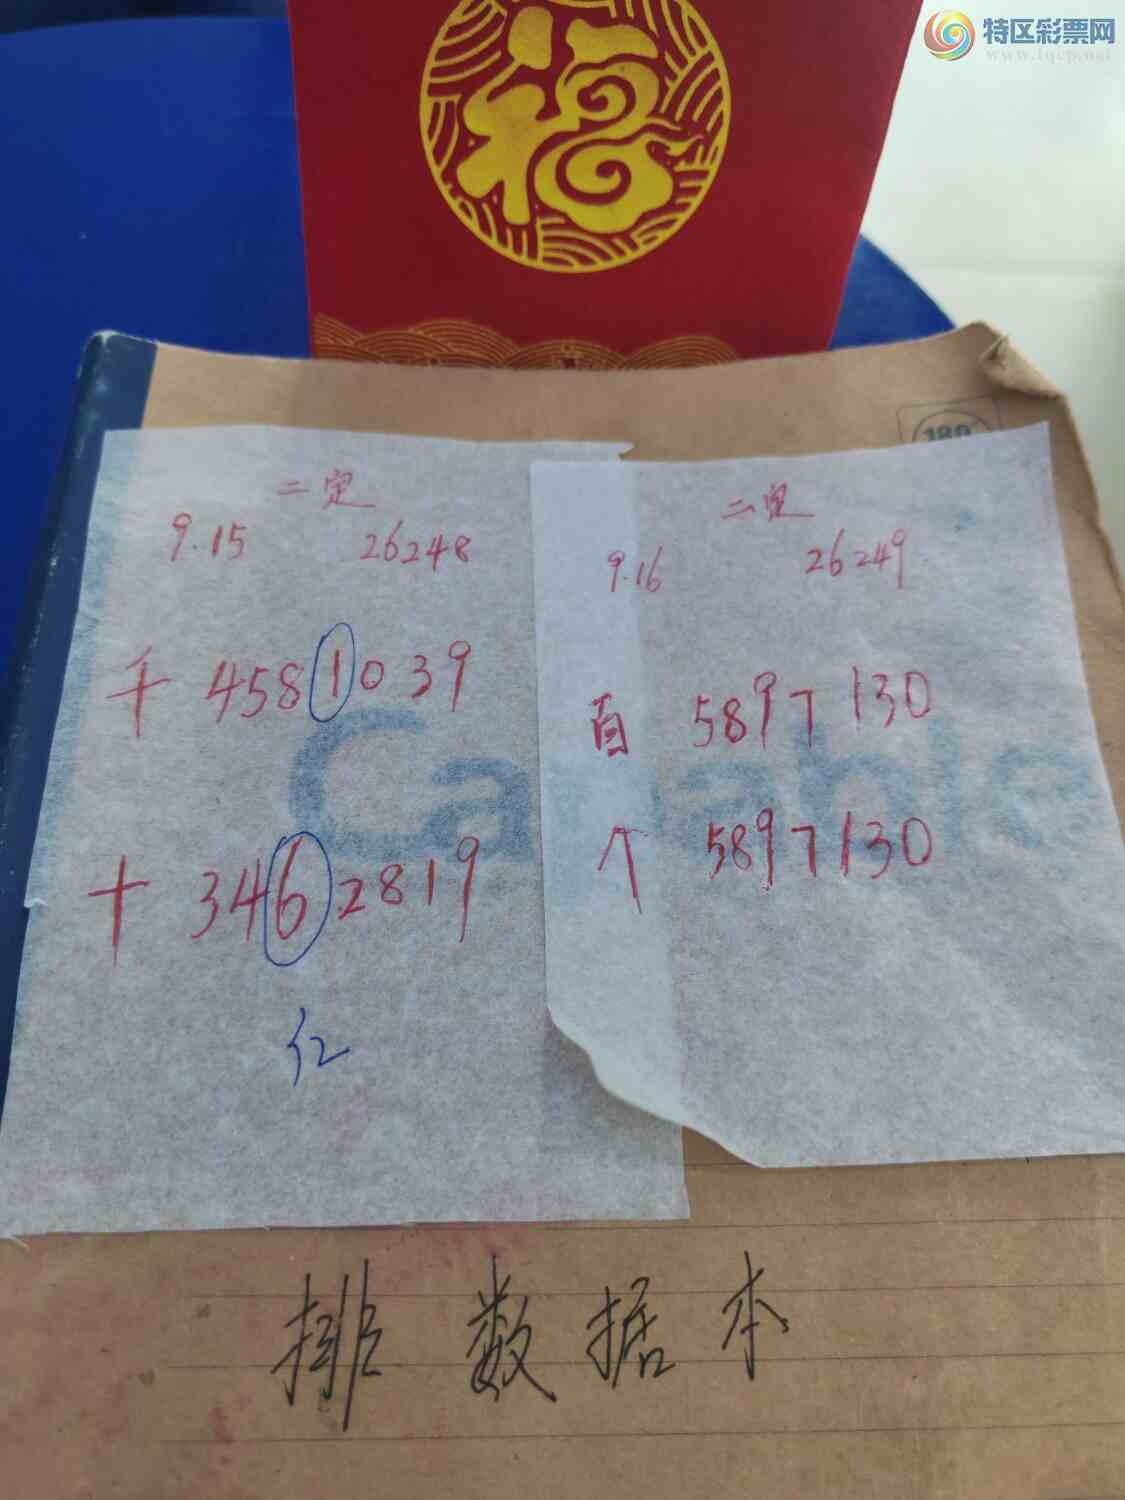 特区彩票网
www.tqcp.net
福
189
二定
9.15 26248
千 4581039
十 3462819
红
二定
9.16 26249
百 5897130
个 5897130
Capable
排数据本